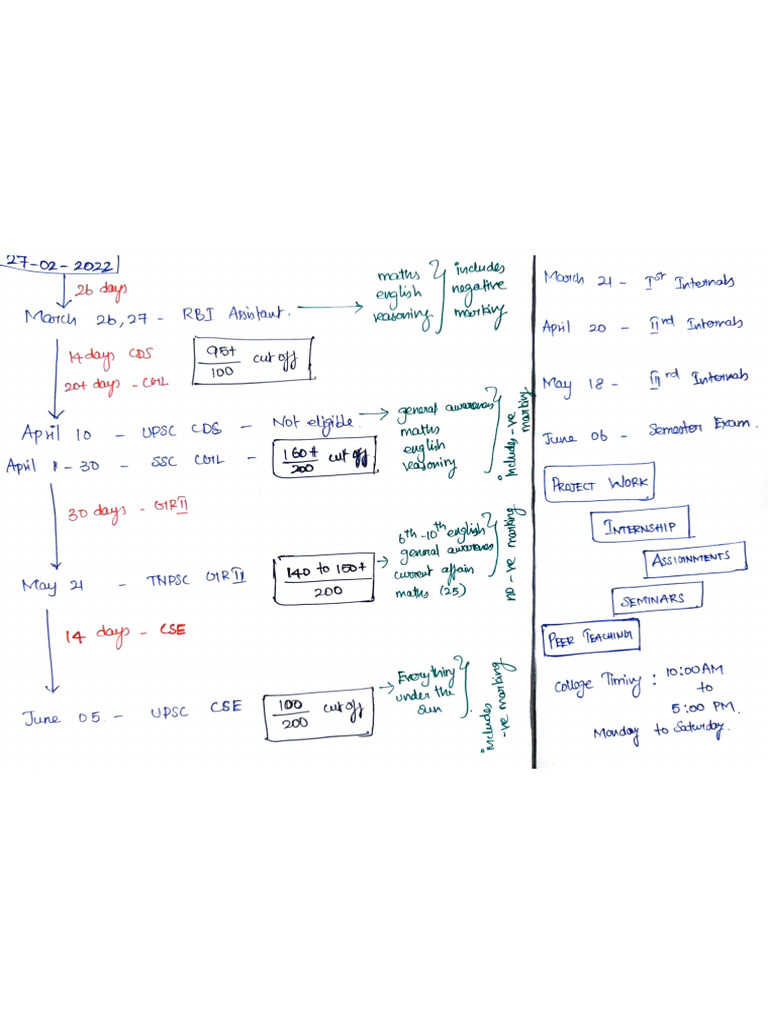 27-02-2022
26 days
March 26, 27 - RBI Assistant.
maths
english
reasoning
includes
negative
marking
14 days CDS
20+ days - CGL
95+
100
cut off
April 10 - UPSC CDS - Not eligible.
April 1 - 30 - SSC CGL -
160+
200
cut off
general awareness
maths
english
reasoning
includes -ve
marking
30 days - GRII
May 21 - TNPSC GRII
140 to 150+
200
6th - 10th english
general awareness
current affair
maths (25)
no -ve marking
14 days - CSE
June 05 - UPSC CSE
100
200
cut off
Everything
under the
sun
includes
-ve marking
March 21 - Ist Internals
April 20 - IIrd Internals
May 18 - IIIrd Internals
June 06 - Semester Exam.
PROJECT WORK
INTERNSHIP
ASSIGNMENTS
SEMINARS
PEER TEACHING
College Timing : 10:00 AM
to
5:00 PM.
Monday to Saturday.